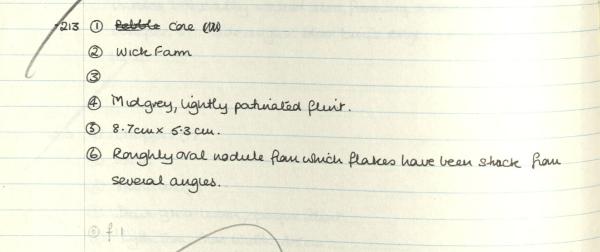 213 ① Pebble Core (W)
② Wick Farm
③
④ Midgrey, lightly patinated flint.
⑤ 8.7cm x 5.3 cm.
⑥ Roughly oval nodule from which flakes have been struck from
several angles.